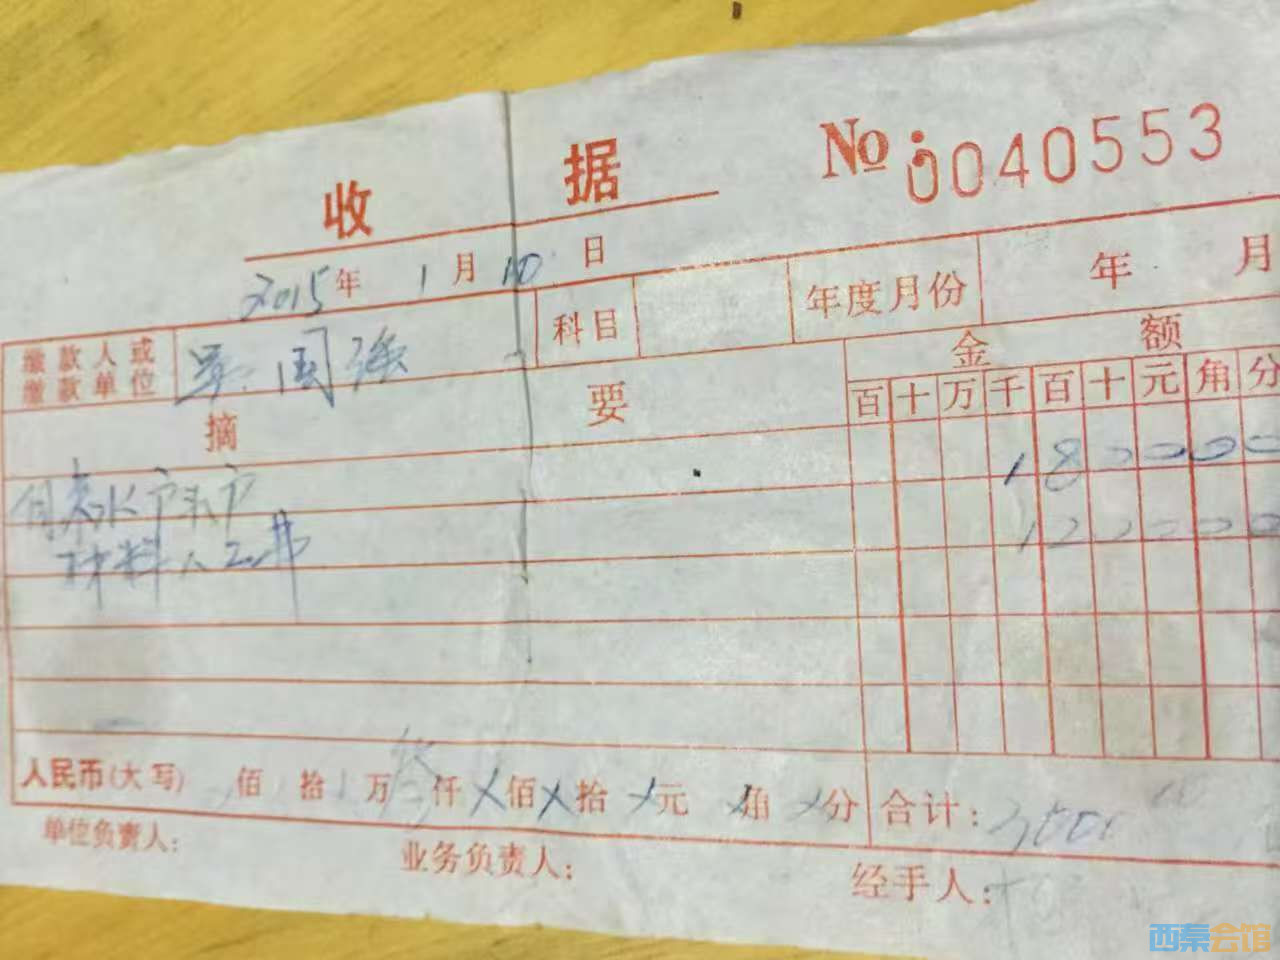 收 据
No: 0040553
2015年 1月 10日
缴款人或缴款单位 国强 科目 年度月份 年 月
摘 要 金 额
百 十 万 千 百 十 元 角 分
1 8 0 0 0 0 0
水户 户
1 2 0 0 0 0 0
材料人工费
人民币(大写) 佰 拾 万 仟 X 佰 X 拾 X 元 X 角 X 分 合计: 3000
单位负责人: 业务负责人: 经手人:
西秦会馆